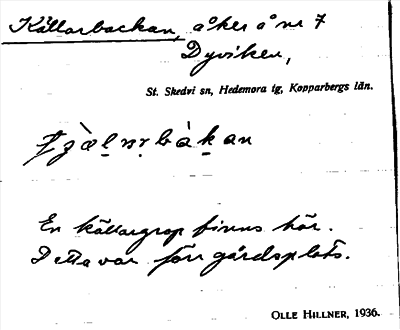 Källarbackan, åker å nr 7
Dyviken,
St. Skedvi sn, Hedemora tg, Kopparbergs län.
En källargrop finns här.
Detta var förr gårdsplats.
OLLE HILLNER, 1936.